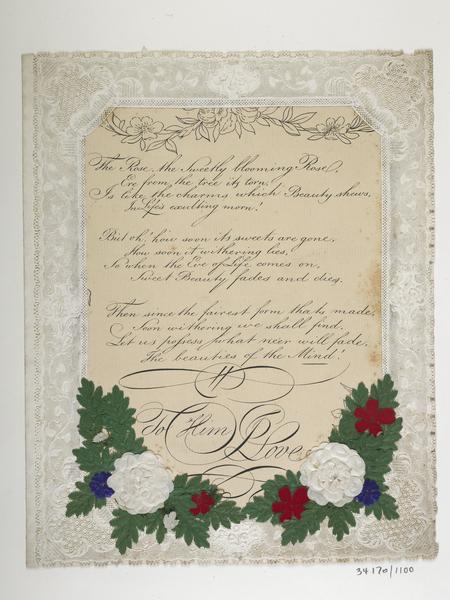 The Rose, the Sweetly blooming Rose,
Ere from the tree its torn,
Is like the charms which Beauty shews,
In Life's exulting morn!
But oh! how soon its sweets are gone,
How soon it withering lies,
So when the Eve of Life comes on,
Sweet Beauty fades and dies.
Then since the fairest form thats made,
Soon withering we shall find,
Let us possess what neer will fade,
The beauties of the Mind!
To Him I Love
34170/1100